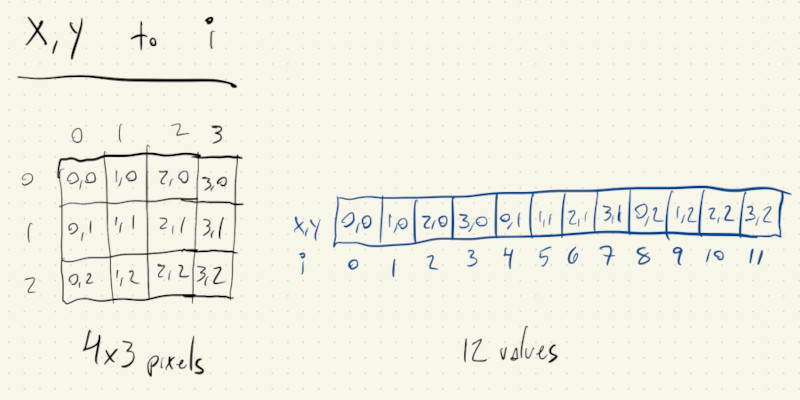 x,y to i
0 1 2 3
0 0,0 1,0 2,0 3,0
1 0,1 1,1 2,1 3,1
2 0,2 1,2 2,2 3,2
4x3 pixels
x,y 0,0 1,0 2,0 3,0 0,1 1,1 2,1 3,1 0,2 1,2 2,2 3,2
i 0 1 2 3 4 5 6 7 8 9 10 11
12 values